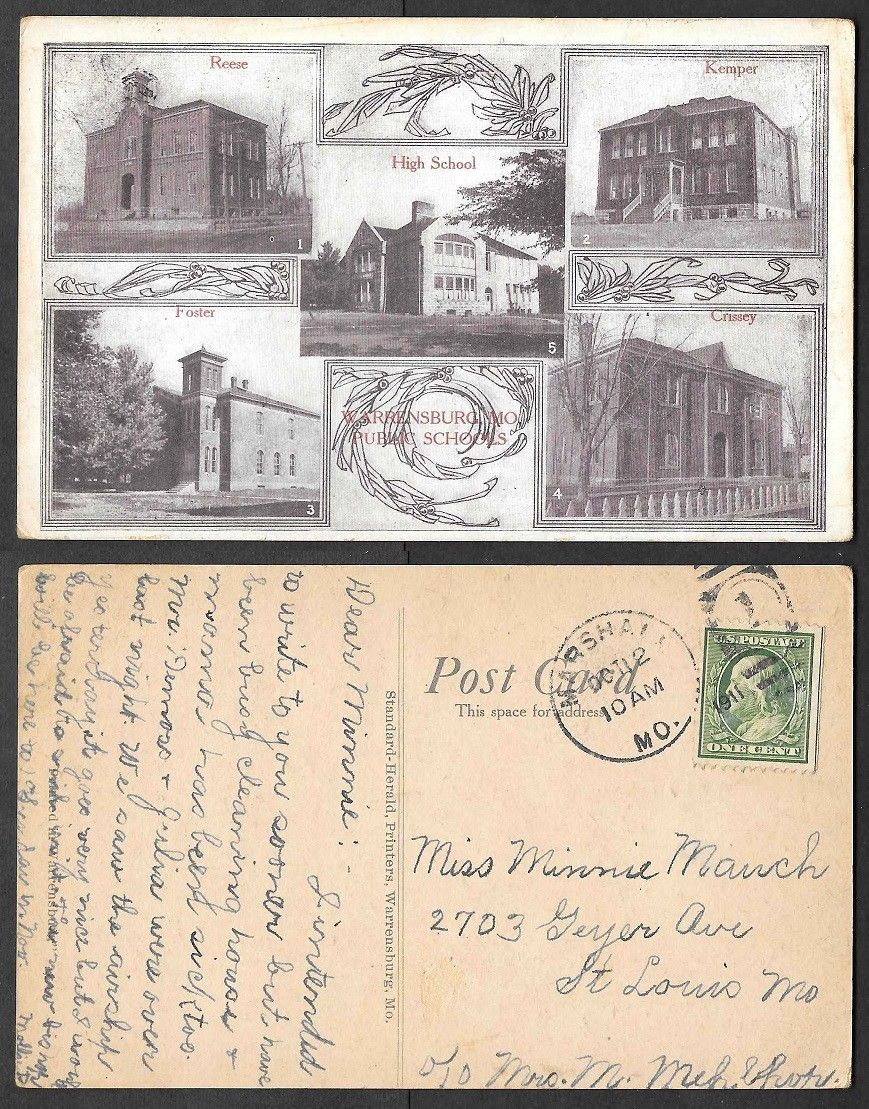 Reese
Kemper
High School
1
2
Foster
Crissey
5
WARRENSBURG MO.
PUBLIC SCHOOLS
3
4
Dear Minnie: - I intended
to write to you sooner but have
been busy cleaning house &
mama has been sick too.
Mr. & Julia were over
last night. We saw the airship
yesterday it goes very nice but I would
be afraid to
will be here to day in Nov.
Standard-Herald, Printers, Warrensburg, Mo.
Post Card
This space for address
MARSHALL
OCT 12
10 AM
MO.
1911
U.S. POSTAGE
ONE CENT
Miss Minnie Mauch
2703 Geyer Ave
St Louis Mo
c/o Mrs. M.